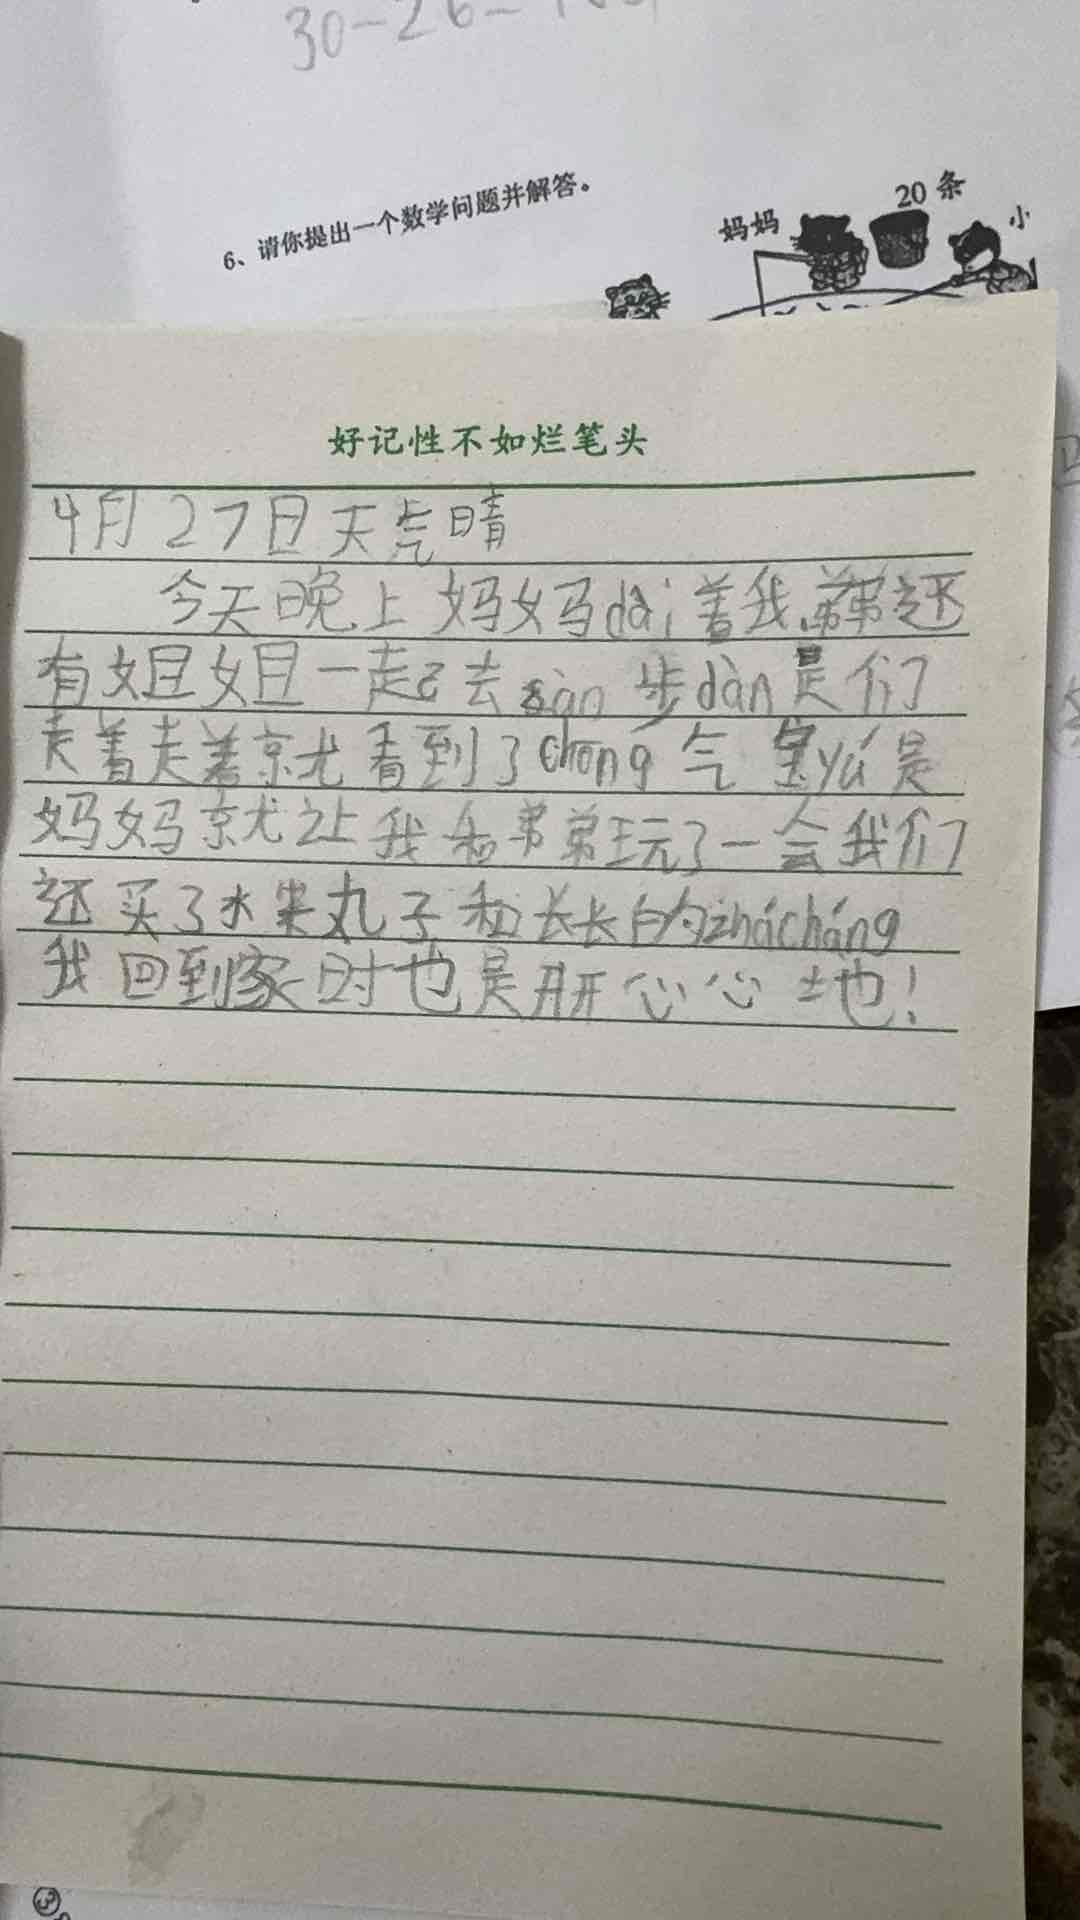 30-26=
6、请你提出一个数学问题并解答。
妈妈
20条
小
好记性不如烂笔头
4月27日天气晴
今天晚上妈妈dài着我弟弟还
有姐姐一起去sàn步dàn是们
走着走着就看到了chōng气宝yú是
妈妈就让我和弟弟玩了一会我们
还买了水果丸子和长长的zhácháng
我回到家时也是开开心心地！
③